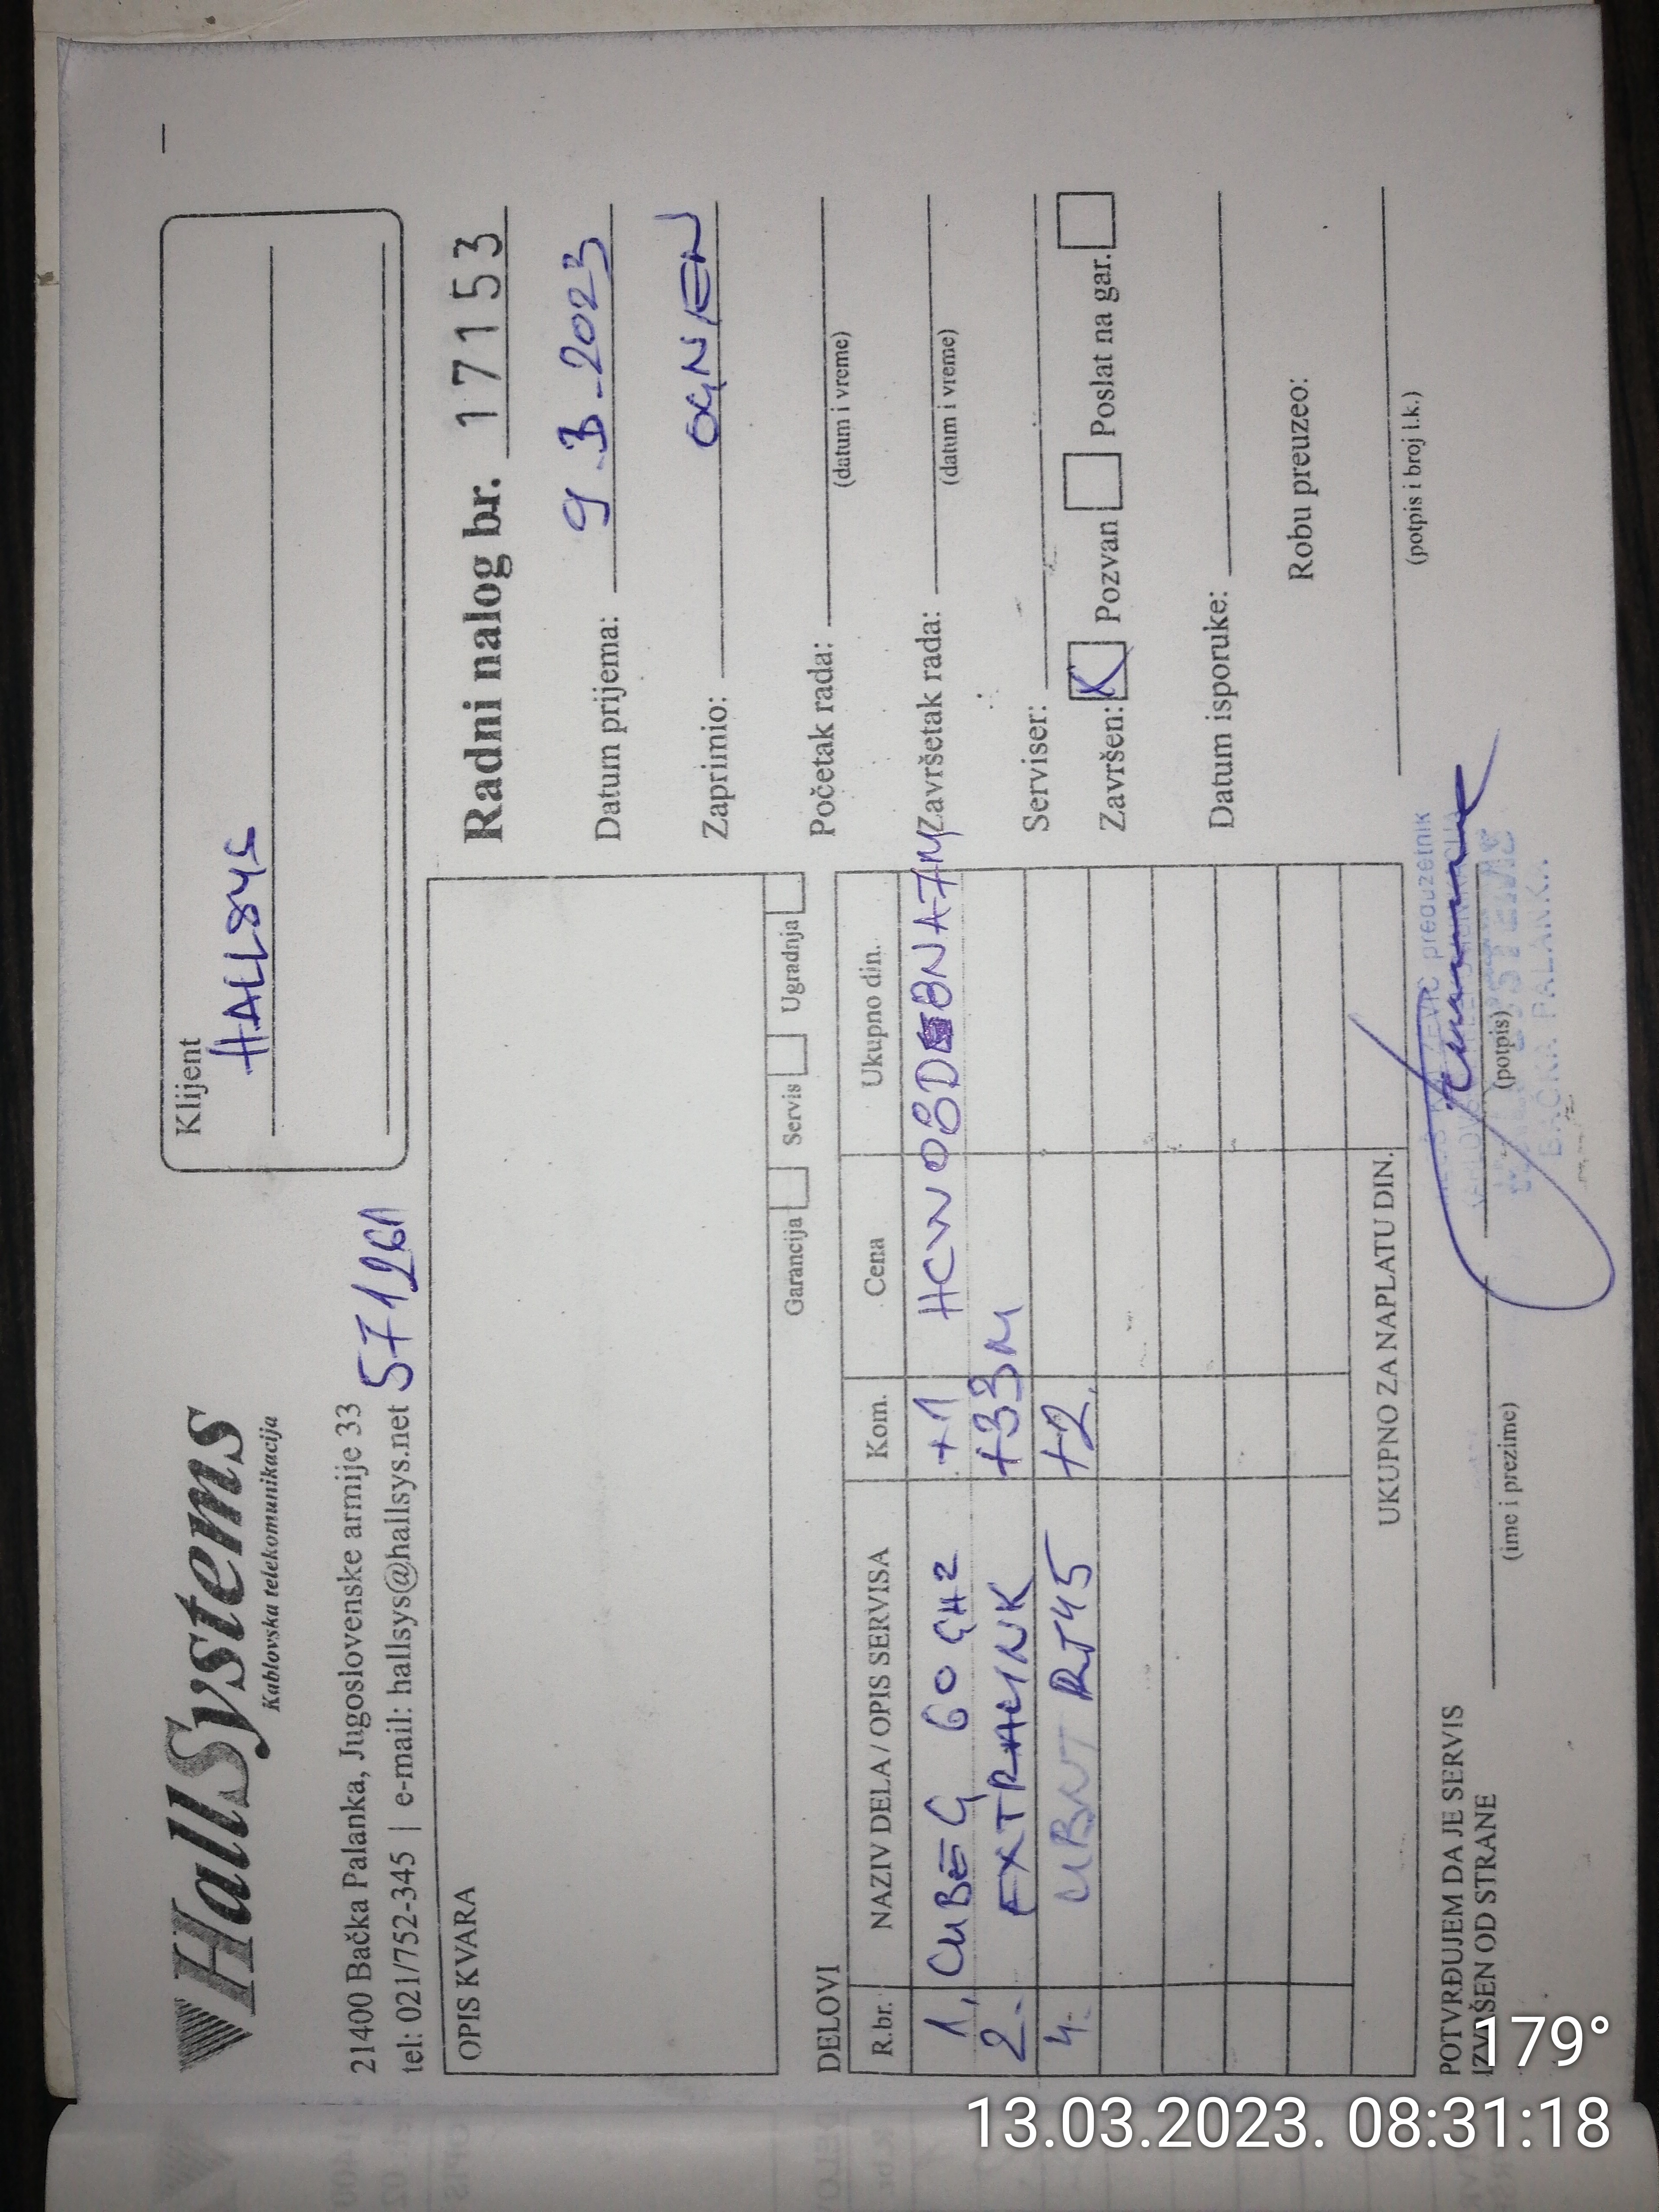 HallSystems
Kablovska telekomunikacija
21400 Bačka Palanka, Jugoslovenske armije 33
tel: 021/752-345 | e-mail: hallsys@hallsys.net
571261
Klijent
HALLSYS
Radni nalog br. 17153
Datum prijema: 9.3.2023
Zaprimio: OGNJEN
Početak rada:
(datum i vreme)
Završetak rada:
(datum i vreme)
Serviser:
Završen: X Pozvan Poslat na gar.
Datum isporuke:
Robu preuzeo:
(potpis i broj l.k.)
OPIS KVARA
Garancija Servis Ugradnja
DELOVI
R.br. NAZIV DELA / OPIS SERVISA Kom. Cena Ukupno din.
1. CUBEG 60GHz +1 HCW08D BNA7M
2. EXTRALINK +33M
4. UBNT RJ45 +2
UKUPNO ZA NAPLATU DIN.
POTVRĐUJEM DA JE SERVIS
IZVRŠEN OD STRANE
(ime i prezime) (potpis)
preduzetnik
BAČKA PALANKA
179°
13.03.2023. 08:31:18